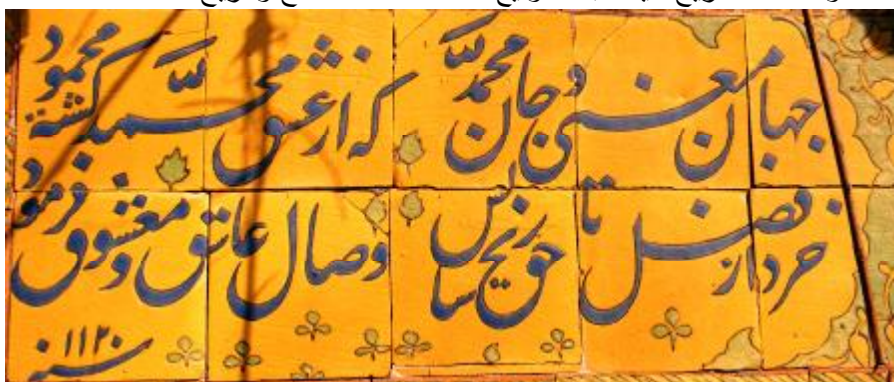 جهان معنی و جان محمّد که از عشق محمّد گشته محمود
خرد از فضل حق تاریخ سالش وصال عاشق و معشوق فرمود
سنه ۱۱۲۰